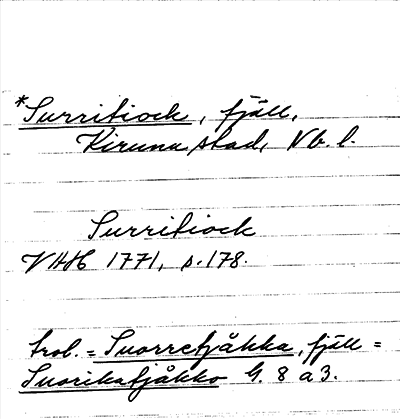 *Surritiock, fjäll,
Kiruna stad, Nb. l.
Surritiock
VHH 1771, s. 178.
trol. = Suorretjåkka, fjäll =
Suorikatjåkko G. 8 a 3.